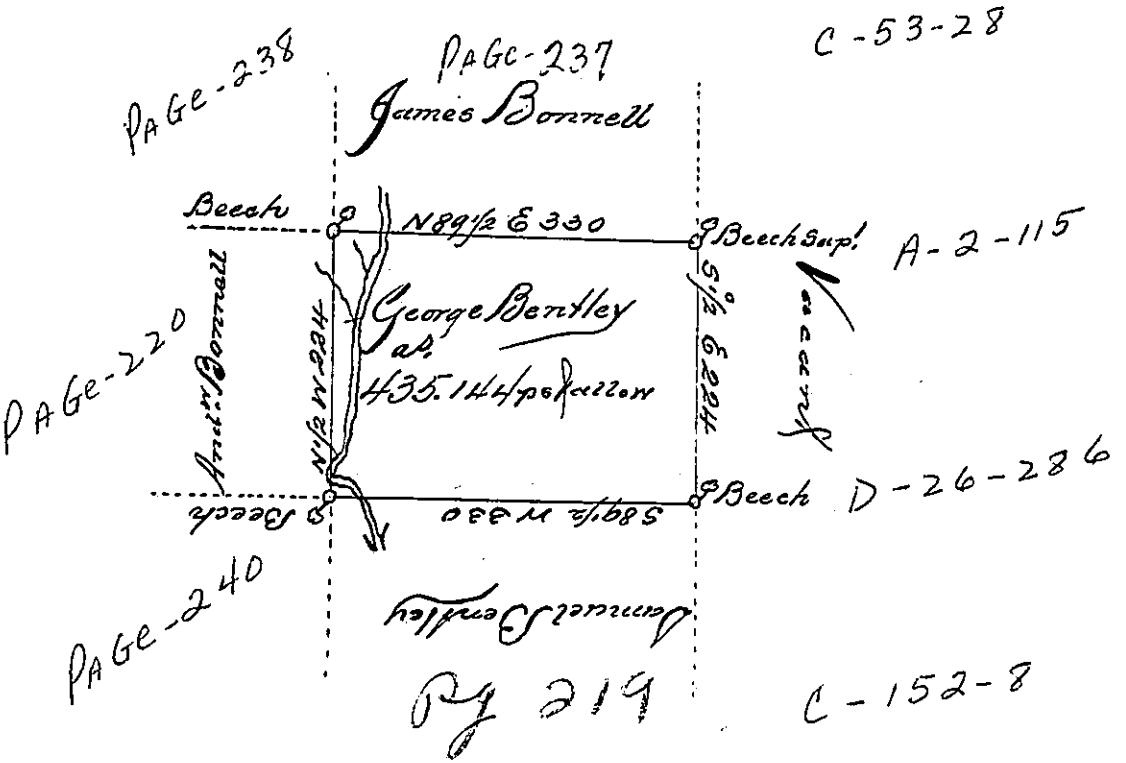 PAGe-238
PAGe-237
C-53-28
James Bonnell
Beech
N89½ E 330
Beech Sup!
A-2-115
S½° E 224
Vacant
George Bentley
as.
435.144 ps & allow
N½ W 224
PAGe-220
Beech
S89½ W 330
Beech
D-26-286
PAGe-240
Samuel Bentley
Pg 219
C-152-8